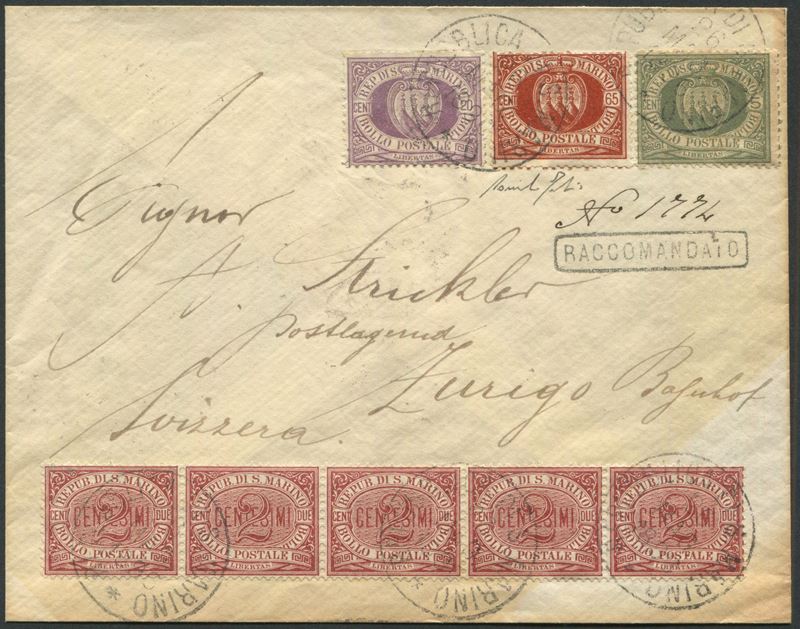 REP. DI S. MARINO
CENT 20
BOLLO POSTALE
LIBERTAS
REP. DI S. MARINO
CENT 65
BOLLO POSTALE
LIBERTAS
REP. DI S. MARINO
CENT 5
BOLLO POSTALE
LIBERTAS
No 1774
RACCOMANDATO
Signor
A. Strickler
postlagernd
Zurigo Bahnhof
Svizzera.
REPUB. DI S. MARINO
CENT 2 DUE
CENTESIMI
BOLLO POSTALE
LIBERTAS
REPUB. DI S. MARINO
CENT 2 DUE
CENTESIMI
BOLLO POSTALE
LIBERTAS
REPUB. DI S. MARINO
CENT 2 DUE
CENTESIMI
BOLLO POSTALE
LIBERTAS
REPUB. DI S. MARINO
CENT 2 DUE
CENTESIMI
BOLLO POSTALE
LIBERTAS
REPUB. DI S. MARINO
CENT 2 DUE
CENTESIMI
BOLLO POSTALE
LIBERTAS